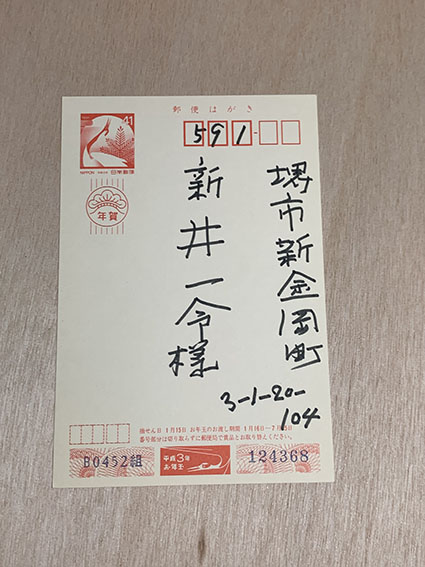 郵便はがき
41
NIPPON
日本郵便
年賀
591
堺市新金岡町
3-1-20-
104
新井一令様
抽せん日 1月15日 お年玉のお渡し期間 1月16日〜7月15日
番号部分は切り取らずに郵便局で賞品とお取り替えください。
B0452組
平成3年
お年玉
124368